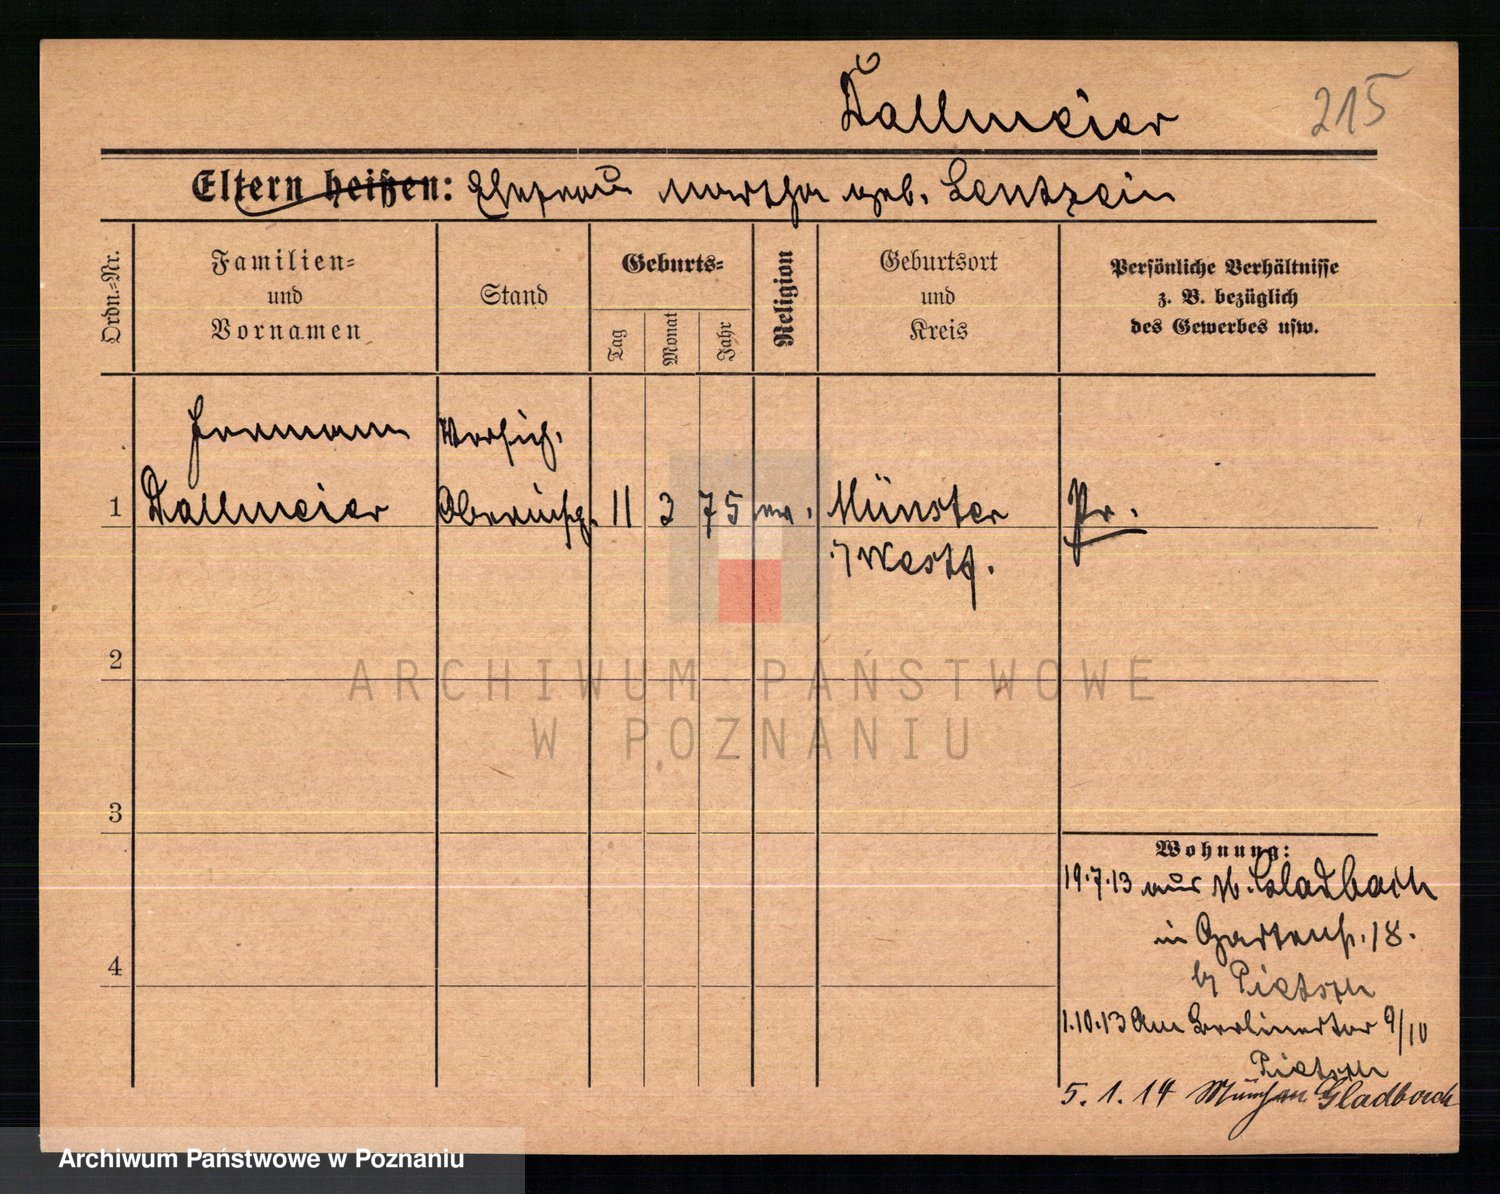 Dallmeier
215
Eltern heißen: Ehefrau Martha geb. Lentzein
Ordn.-Nr.
Familien-
und
Vornamen
Stand
Geburts-
Tag
Monat
Jahr
Religion
Geburtsort
und
Kreis
Persönliche Verhältnisse
z. B. bezüglich
des Gewerbes usw.
Hermann Versich.
1 Dallmeier Oberinsp. 11 3 75 Münster Pr.
i/Westf.
2
ARCHIWUM PAŃSTWOWE
W POZNANIU
3
4
Wohnung:
19.7.13 aus M. Gladbach
in Gartenstr. 18.
b/
1.10.13 Am Berlinertor 9/10
5. 1. 14 München Gladbach
Archiwum Państwowe w Poznaniu